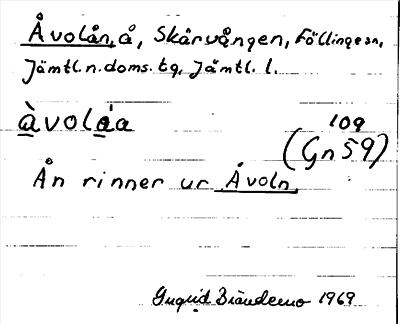 Åvolån, å, Skårvången, Föllinge sn,
Jämtl. n. doms. tg, Jämtl. l.
àvolåa
109
(Gn 59)
Ån rinner ur Åvoln.
Ingrid 1969